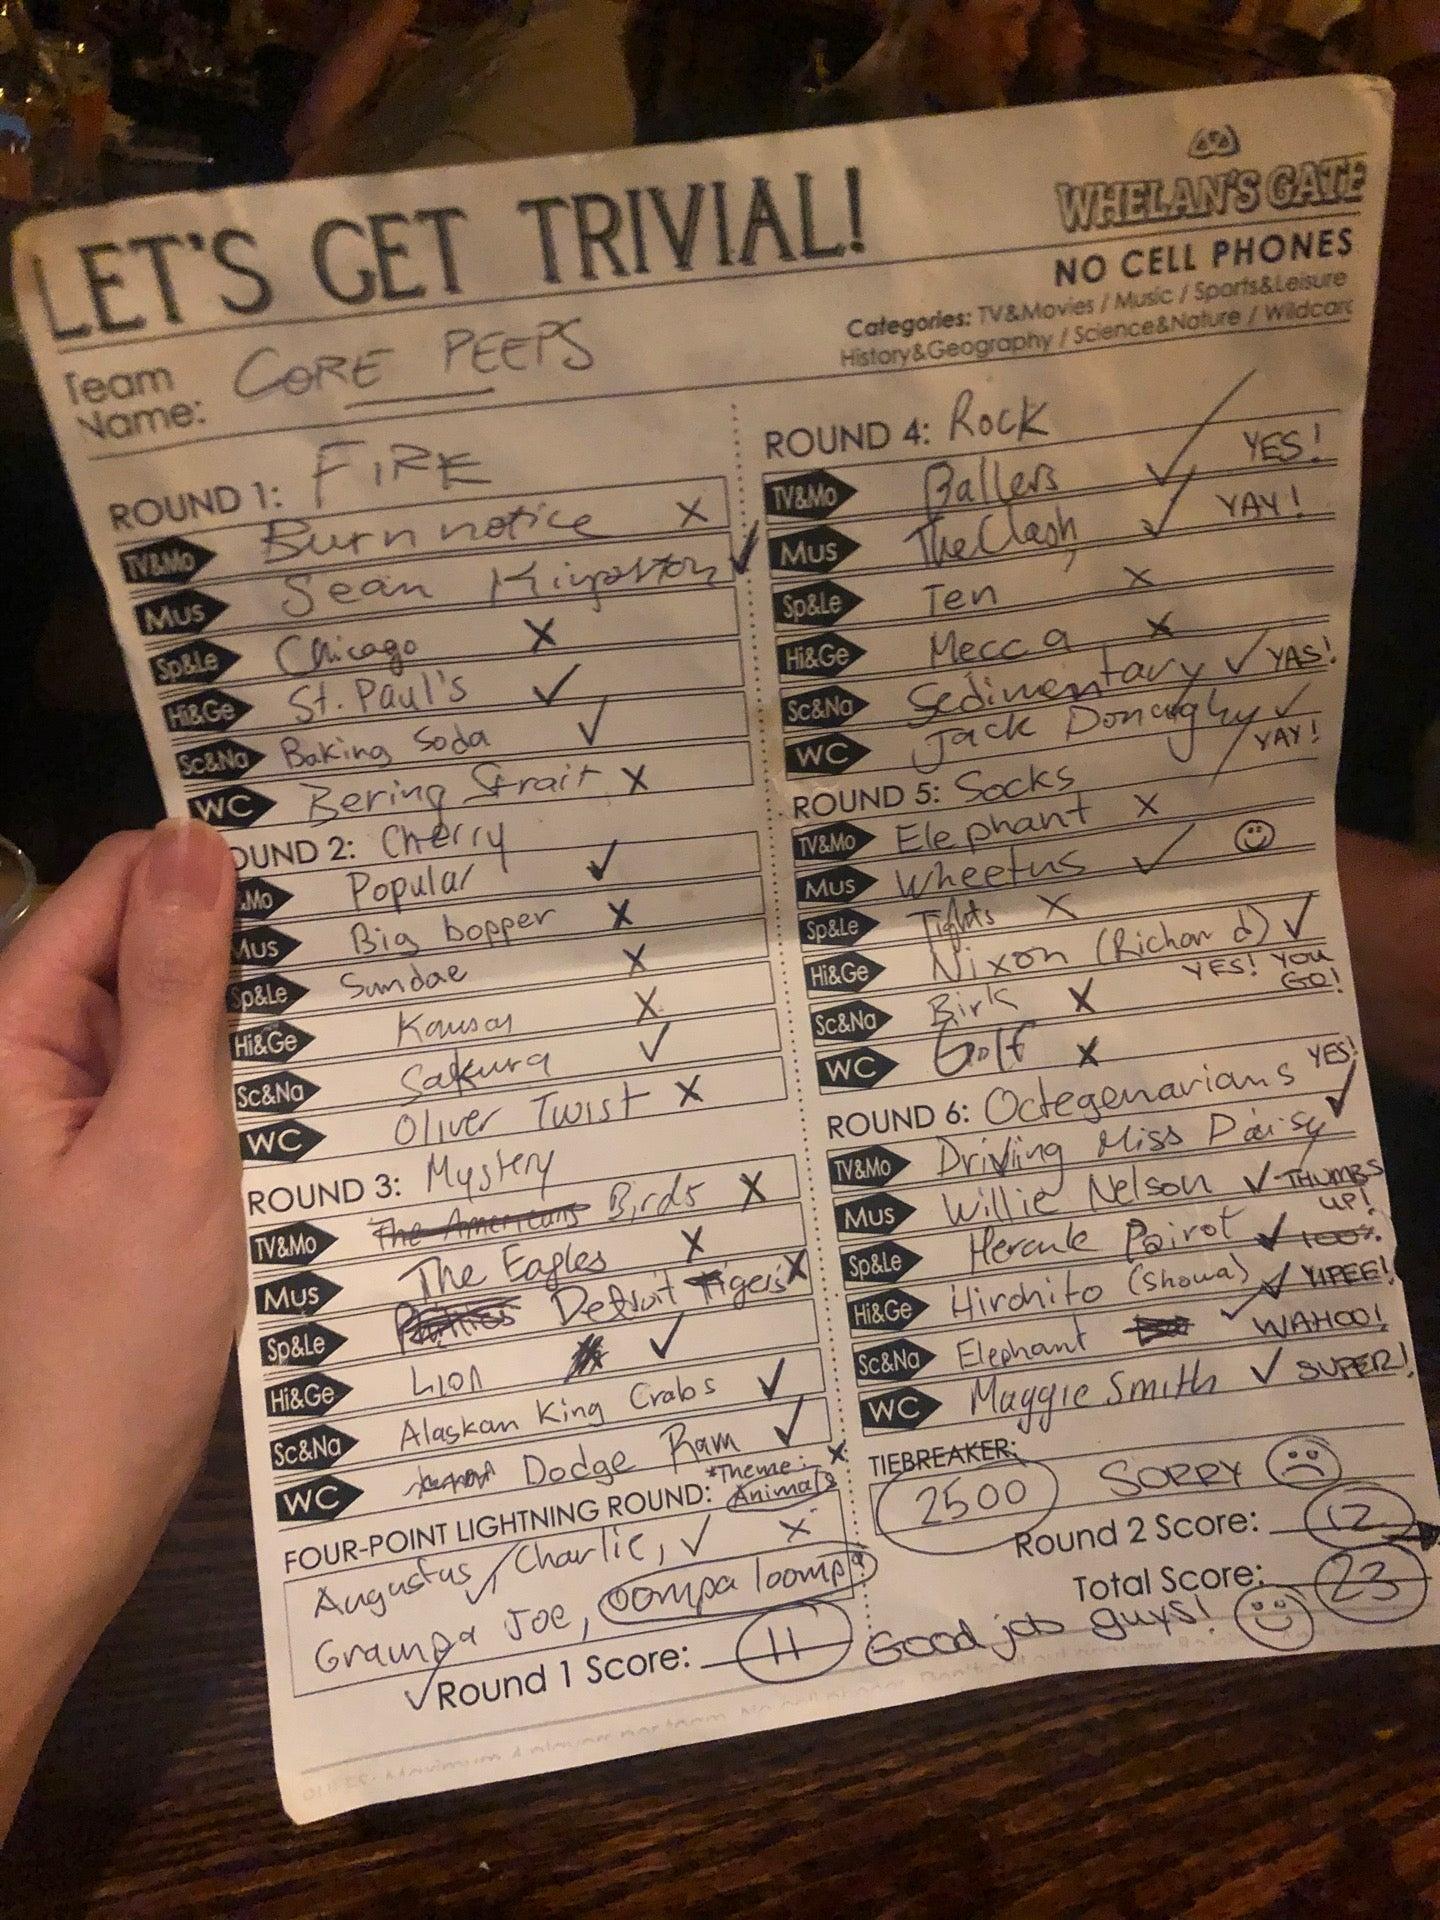 LET'S GET TRIVIAL!
WHELAN'S GATE
NO CELL PHONES
Categories: TV&Movies / Music / Sports&Leisure
History&Geography / Science&Nature / Wildcard
Team Name: CORE PEEPS
ROUND 1: FIRE
TV&Mo Burn notice X
Mus Sean Kingston ✓
Sp&Le Chicago X
Hi&Ge St. Paul's ✓
Sc&Na Baking Soda ✓
WC Bering Strait X
OUND 2: Cherry
Mo Popular ✓
Mus Big bopper X
Sp&Le Sundae X
Hi&Ge Kansas X
Sc&Na Sakura ✓
WC Oliver Twist X
ROUND 3: Mystery
TV&Mo The Americans Birds X
Mus The Eagles X
Sp&Le Detroit Tigers X
Hi&Ge Lion ✓
Sc&Na Alaskan King Crabs ✓
WC Dodge Ram ✓
*Theme: X
FOUR-POINT LIGHTNING ROUND: Animals
Augustus ✓ Charlie, ✓ X
Grampa Joe, oompa loompa
✓ Round 1 Score: 11
ROUND 4: Rock
TV&Mo Ballers ✓ YES!
Mus The Clash ✓ YAY!
Sp&Le Ten X
Hi&Ge Mecca X
Sc&Na Sedimentary ✓ YAS!
WC Jack Donaghy ✓ YAY!
ROUND 5: Socks
TV&Mo Elephant X
Mus Wheetus ✓ ☺
Sp&Le Tights X
Hi&Ge Nixon (Richard) ✓
YES! YOU GO!
Sc&Na Birk X
WC Golf X
ROUND 6: Octegenarians YES!
TV&Mo Driving Miss Daisy ✓
Mus Willie Nelson ✓ THUMBS UP!
Sp&Le Hercule Poirot ✓ 100%
Hi&Ge Hirohito (Showa) ✓ YIPEE!
Sc&Na Elephant ✓ WAHOO!
WC Maggie Smith ✓ SUPER!
TIEBREAKER:
2500 SORRY ☹
Round 2 Score: 12
Total Score: 23
Good job guys! ☺